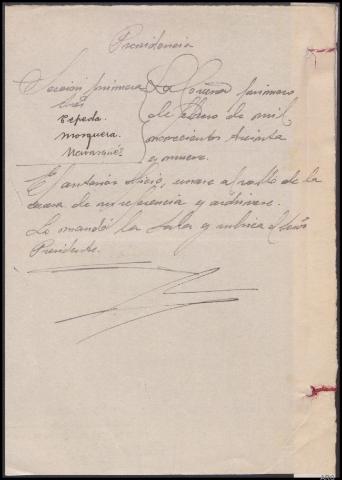 Presidencia
Sección primera
Sres
Cepeda.
Mosquera.
Navarqués
La Coruña primero
de febrero de mil
novecientos treinta
y nueve.
El anterior oficio, únase al rollo de la
causa de su referencia y archívese.
Lo mandó la Sala y rubrica el Señor
Presidente.